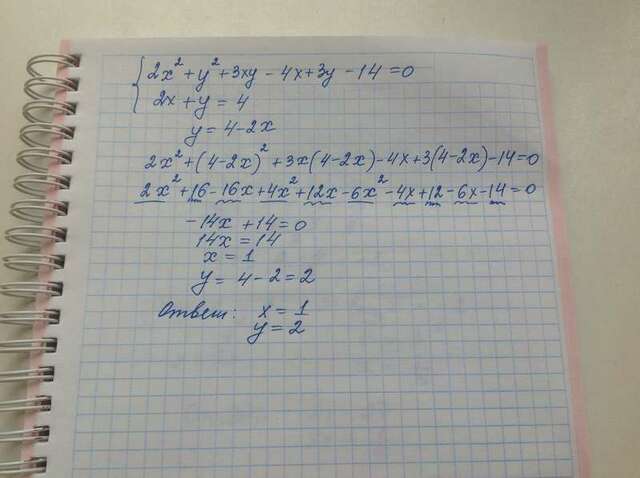 2x² + y² + 3xy - 4x + 3y - 14 = 0
2x + y = 4
y = 4 - 2x
2x² + (4 - 2x)² + 3x(4 - 2x) - 4x + 3(4 - 2x) - 14 = 0
2x² + 16 - 16x + 4x² + 12x - 6x² - 4x + 12 - 6x - 14 = 0
-14x + 14 = 0
14x = 14
x = 1
y = 4 - 2 = 2
Ответ: x = 1
y = 2